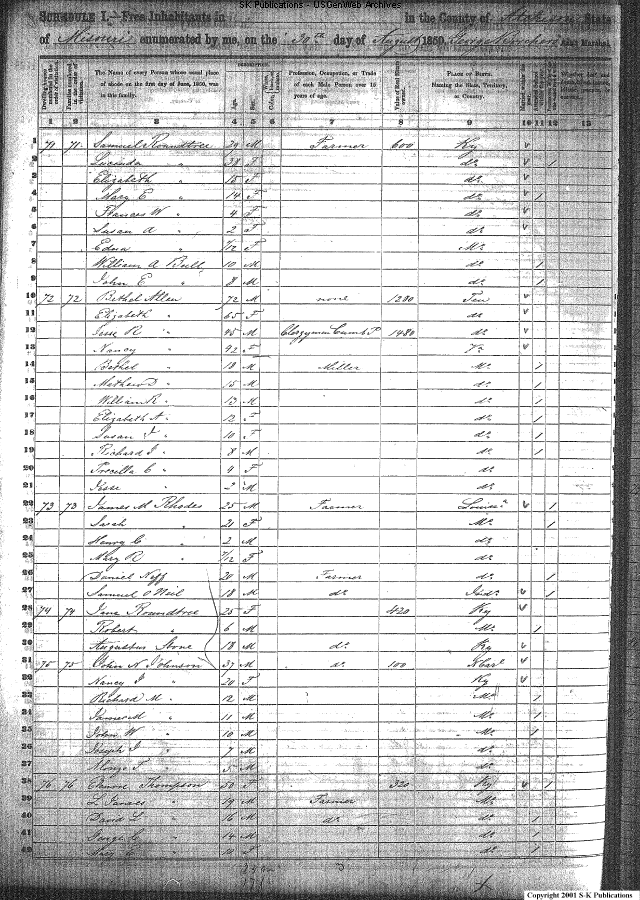 S-K Publications - USGenWeb Archives
SCHEDULE I.—Free Inhabitants in in the County of Atchison State
of Missouri enumerated by me, on the 30th day of August 1850. Ass't Marshal.
DESCRIPTION.
The Name of every Person whose usual place of abode on the first day of June, 1850, was in this family.
Age.
Sex.
Profession, Occupation, or Trade of each Male Person over 15 years of age.
Value of Real Estate owned.
PLACE OF BIRTH. Naming the State, Territory, or Country.
1 2 3 4 5 6 7 8 9 10 11 12 13
1 71 71 Samuel Roundtree 39 M Farmer 600 Ky
2 Lucinda " 38 F do
3 Elizabeth " 15 F do
4 Mary E " 14 F do 1
5 Frances W " 4 F do
6 Susan A " 2 F do
7 Edna " /12 F Mo
8 William A Bull 10 M do 1
9 John E " 8 M do 1
10 72 72 Bethel Allen 72 M none 1280 Ten
11 Elizabeth " 65 F do
12 Jesse R " 45 M Clergyman Cumb P 1480 do
13 Nancy " 42 F Ky
14 Bethel " 18 M Miller Mo 1
15 Mathew D " 15 M do 1
16 William R " 13 M do 1
17 Elizabeth A " 12 F do 1
18 Susan J " 10 F do 1
19 Richard J " 8 M do 1
20 Priscilla C " 4 F do
21 Jesse " 2 M do
22 73 73 James M Rhodes 25 M Farmer Louisa 1
23 Sarah " 21 F Mo 1
24 Henry C " 2 M do
25 Mary R " /12 F do
26 Daniel Neff 20 M Farmer do 1
27 Samuel O Neil 18 M do Inda 1
28 74 74 Jane Roundtree 25 F 420 Ky
29 Robert " 6 M Mo 1
30 Augustus Stone 18 M do Ky
31 75 75 John N Johnson 37 M do 100 N Carl
32 Nancy J " 30 F Ky
33 Richard M " 12 M Mo 1
34 James M " 11 M Mo 1
35 John W " 10 M Mo 1
36 Joseph J " 7 M do
37 Alonzo T " 5 M do
38 76 76 Thompson 50 F 320 Ky 1
39 L " 19 M Farmer Mo
40 David L " 16 M do do 1
41 George C " 14 M do 1
42 " 10 F do 1
Copyright 2001 S-K Publications